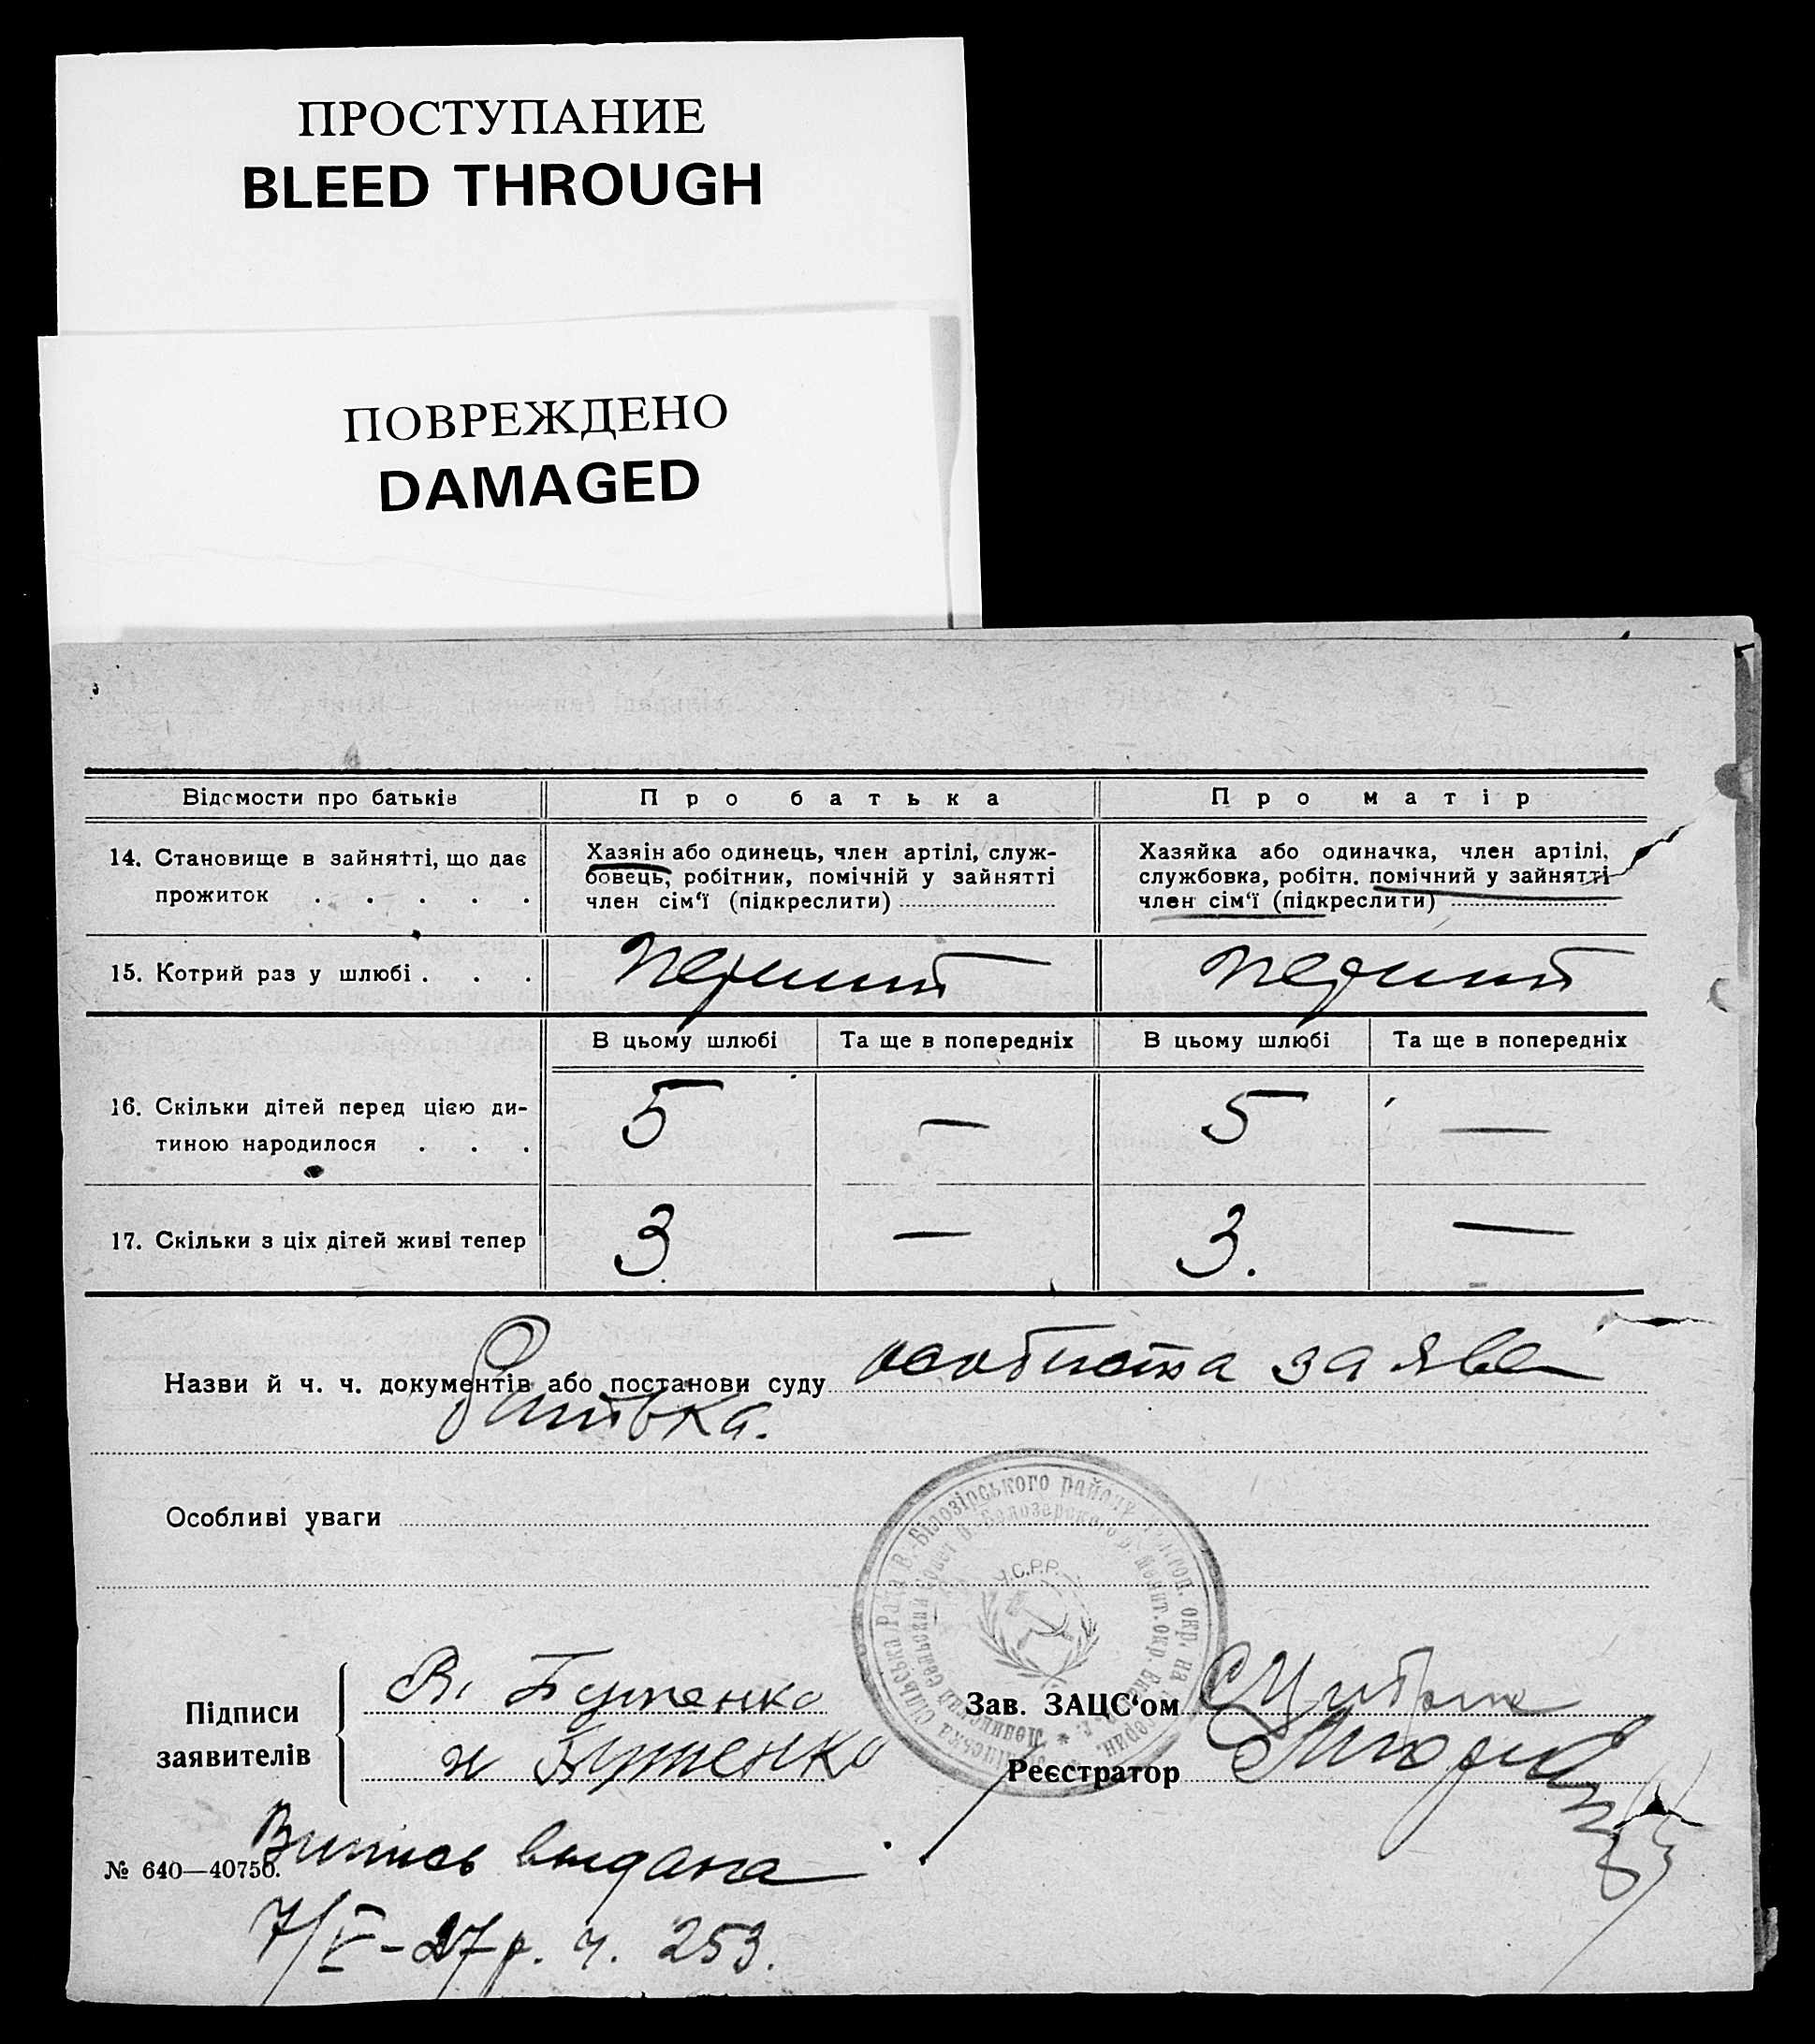 ПРОСТУПАНИЕ
BLEED THROUGH
ПОВРЕЖДЕНО
DAMAGED
Відомости про батьків
Про батька
Про матір
14. Становище в зайнятті, що дає
прожиток . . . . .
Хазяін або одинець, член артілі, служ-
бовець, робітник, помічній у зайнятті
член сім‘ї (підкреслити)
Хазяйка або одиначка, член артілі,
службовка, робітн. помічний у зайнятті
член сім‘ї (підкреслити)
15. Котрий раз у шлюбі . . .
перший
перший
В цьому шлюбі
Та ще в попередніх
В цьому шлюбі
Та ще в попередніх
16. Скільки дітей перед цією ди-
тиною народилося . . .
5 — 5 —
17. Скільки з ціх дітей живі тепер
3 — 3. —
Назви й ч. ч. документів або постанови суду особиста заява
батька.
Особливі уваги
Рада В.-Білозірського району
У.С.Р.Р.
Підписи
заявителів
В. Бутенко
н Бутенко
Зав. ЗАЦС‘ом
Реєстратор
Випись выдана
№ 640—40750.
7/V–27 р. ч. 253.